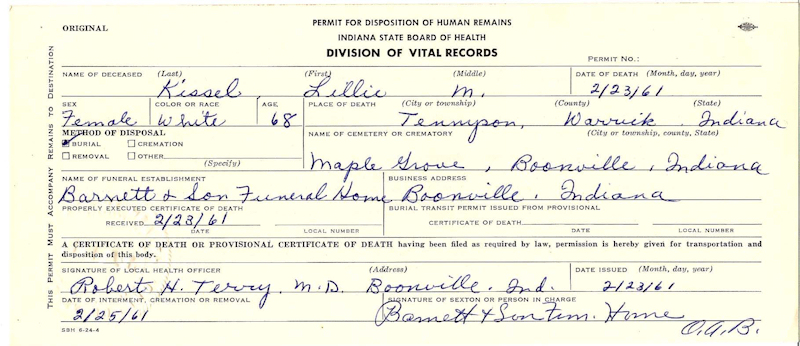 ORIGINAL
PERMIT FOR DISPOSITION OF HUMAN REMAINS
INDIANA STATE BOARD OF HEALTH
DIVISION OF VITAL RECORDS
PERMIT NO.:
THIS PERMIT MUST ACCOMPANY REMAINS TO DESTINATION
NAME OF DECEASED (Last) (First) (Middle) DATE OF DEATH (Month, day, year)
Kissel, Lillie M. 2/23/61
SEX COLOR OR RACE AGE PLACE OF DEATH (City or township) (County) (State)
Female White 68 Tennyson, Warrick, Indiana
METHOD OF DISPOSAL NAME OF CEMETERY OR CREMATORY (City or township, county, State)
BURIAL CREMATION
REMOVAL OTHER (Specify)
Maple Grove, Boonville, Indiana
NAME OF FUNERAL ESTABLISHMENT BUSINESS ADDRESS
Barnett & Son Funeral Home Boonville, Indiana
PROPERLY EXECUTED CERTIFICATE OF DEATH BURIAL TRANSIT PERMIT ISSUED FROM PROVISIONAL
RECEIVED 2/23/61 CERTIFICATE OF DEATH
DATE LOCAL NUMBER DATE LOCAL NUMBER
A CERTIFICATE OF DEATH OR PROVISIONAL CERTIFICATE OF DEATH having been filed as required by law, permission is hereby given for transportation and
disposition of this body.
SIGNATURE OF LOCAL HEALTH OFFICER (Address) DATE ISSUED (Month, day, year)
Robert H. Terry, M.D. Boonville, Ind. 2/23/61
DATE OF INTERMENT, CREMATION OR REMOVAL SIGNATURE OF SEXTON OR PERSON IN CHARGE
2/25/61 Barnett & Son Fun. Home
O.A.B.
SBH 6-24-4